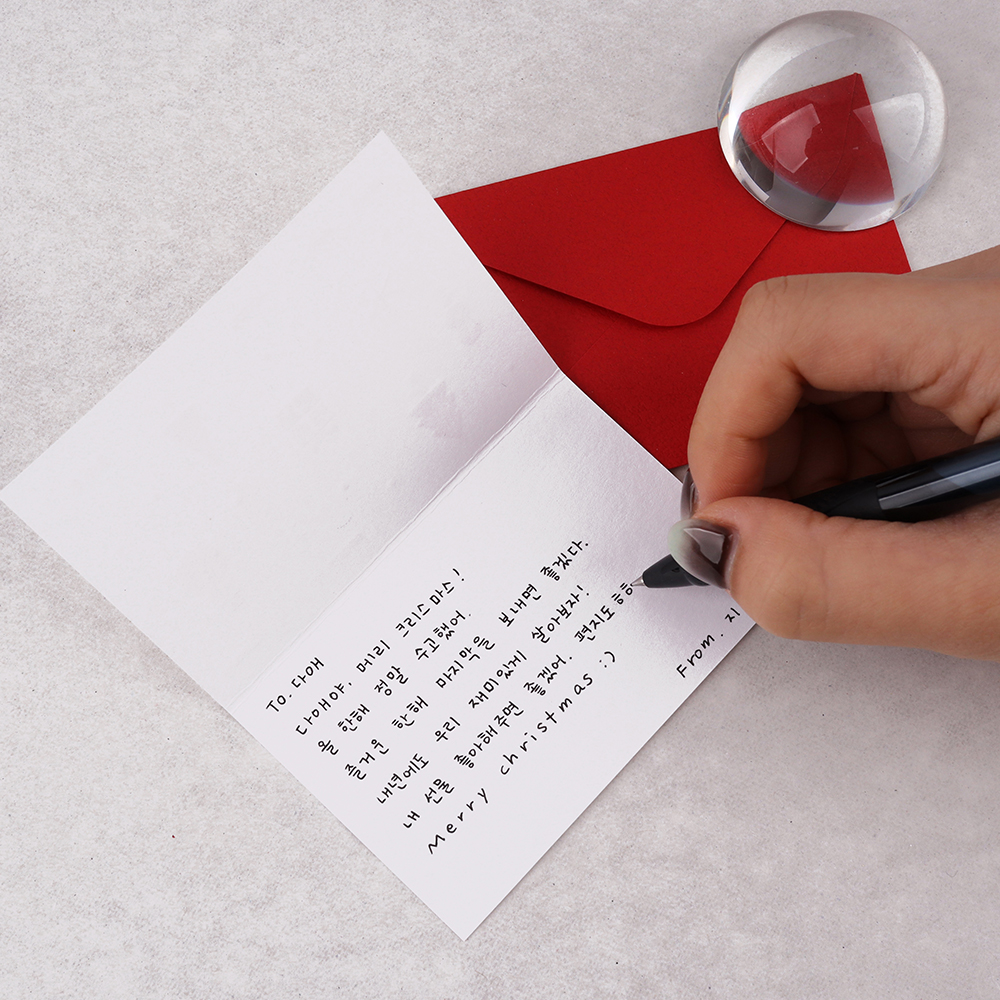 To. 다애
다애야, 메리 크리스마스!
올 한해 정말 수고했어.
즐거운 한해 마지막을 보내면 좋겠다.
내년에도 우리 재미있게 살아보자!
내 선물 좋아해주면 좋겠어. 편지도 ㅎㅎ
Merry christmas :)
From. 지